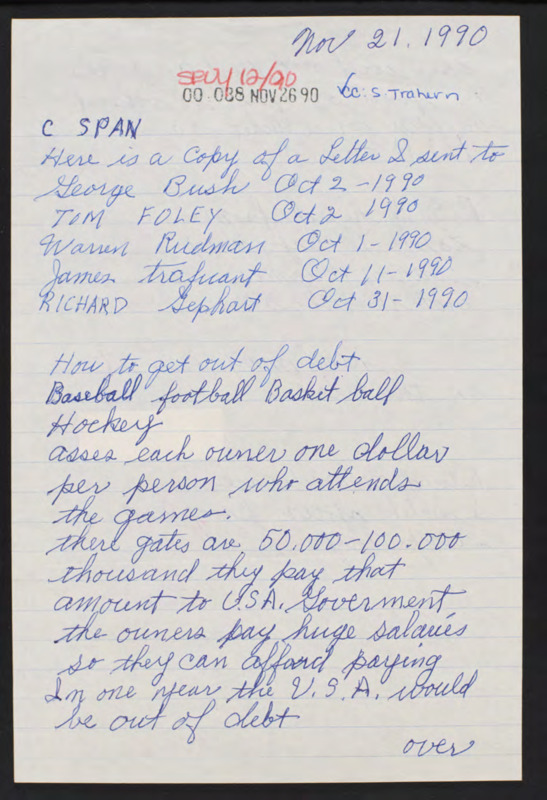 Nov 21, 1990
SEUY 12/90
00 088 NOV 26 90
cc: S. Trahern
C SPAN
Here is a Copy of a Letter I sent to
George Bush Oct 2 - 1990
TOM FOLEY Oct 2 1990
Warren Rudman Oct 1 - 1990
James traficant Oct 11 - 1990
RICHARD Gephart Oct 31 - 1990
How to get out of debt
Baseball football Basket ball
Hockey
asses each owner one dollar
per person who attends
the games.
there gates are 50.000 - 100.000
thousand they pay that
amount to U.S.A. Goverment
the owners pay huge salaries
so they can afford paying
In one year the U.S.A. would
be out of debt
over